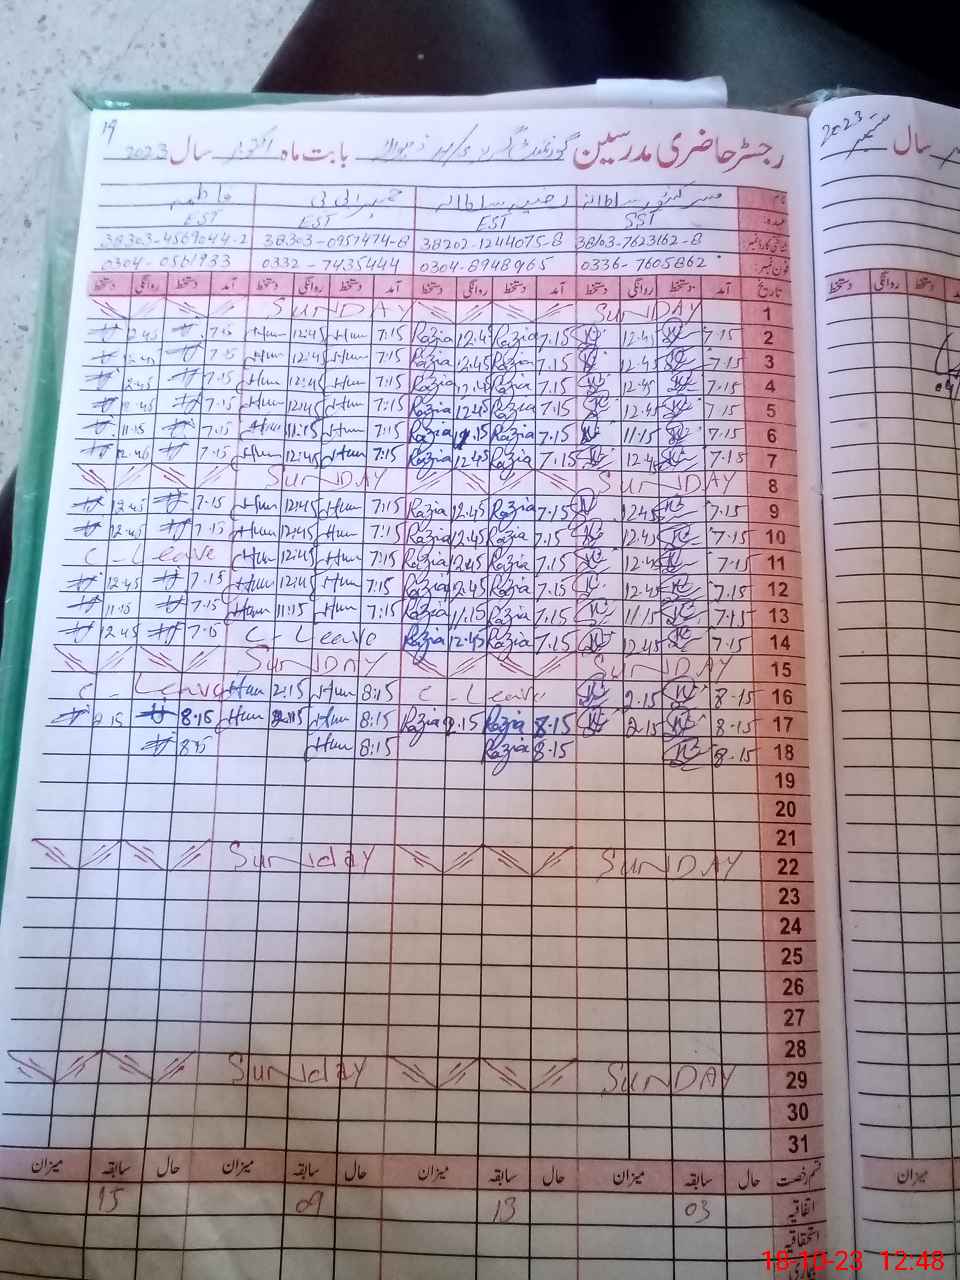 19
رجسٹر حاضری مدرسین گورنمنٹ بابت ماہ اکتوبر سال 2023
نام رضیہ سلطانہ
عہدہ SST EST EST EST
38103-7623162-8 38202-1244075-8 38303-0957474-8 38303-4569044-2
فون نمبر 0336-7605862 0304-8948965 0332-7435444 0304-0561933
تاریخ آمد دستخط روانگی دستخط آمد دستخط روانگی دستخط آمد دستخط روانگی دستخط آمد دستخط روانگی دستخط
1 SUNDAY SUNDAY
2 7.15 12.45 7.15 Razia 12.45 Razia 7:15 Hum 12:45 Hum 7.15 12.45
3 7.15 12.45 7.15 Razia 12.45 Razia 7:15 Hum 12:45 Hum 7.15 12.45
4 7.15 12.45 7.15 Razia 12.45 Razia 7:15 Hum 12:45 Hum 7.15 12.45
5 7.15 12.45 7.15 Razia 12.45 Razia 7:15 Hum 12:45 Hum 7.15 12.45
6 7.15 11.15 7.15 Razia 11.15 Razia 7:15 Hum 11:15 Hum 7.15 11.15
7 7.15 12.45 7.15 Razia 12.45 Razia 7:15 Hum 12:45 Hum 7.15 12.45
8 SUNDAY SUNDAY
9 7.15 12.45 7.15 Razia 12.45 Razia 7:15 Hum 12:45 Hum 7.15 12.45
10 7.15 12.45 7.15 Razia 12.45 Razia 7:15 Hum 12:45 Hum 7.15 12.45
11 7.15 12.45 7.15 Razia 12.45 Razia 7:15 Hum 12:45 Hum C-Leave
12 7.15 12.45 7.15 Razia 12.45 Razia 7:15 Hum 12:45 Hum 7.15 12.45
13 7.15 11.15 7.15 Razia 11.15 Razia 7:15 Hum 11:15 Hum 7.15 11.15
14 7.15 12.45 7.15 Razia 12.45 Razia C-Leave 7.15 12.45
15 SUNDAY SUNDAY
16 8.15 2.15 C-Leave 8:15 Hum 2:15 Hum C-Leave
17 8.15 2.15 8.15 Razia 2.15 Razia 8:15 Hum 2:15 Hum 8.15 2.15
18 8.15 8.15 Razia 8:15 Hum 8.15
19
20
21
22 SUNDAY Sunday
23
24
25
26
27
28
29 SUNDAY Sunday
30
31
قسم رخصت حال سابقہ میزان حال سابقہ میزان حال سابقہ میزان حال سابقہ میزان
اتفاقیہ 03 13 09 15
استحقاقیہ
بیماری
سال ستمبر 2023
دستخط روانگی دستخط
میزان
18-10-23 12.48